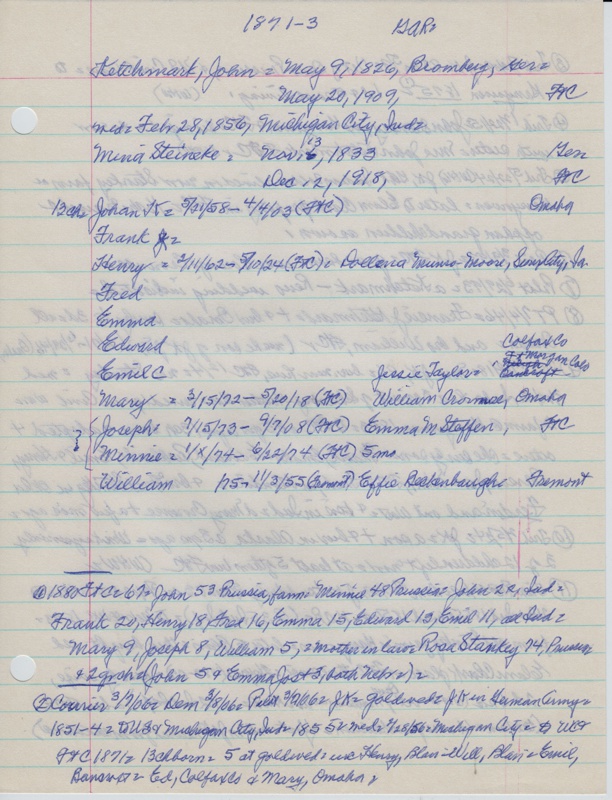 1871-3 GAR=
Ketchmark, John = May 9, 1826, Bromberg, Ger=
May 20, 1909, FtC
md= Febr 28, 1856, Michigan City, Ind=
Mina Steineke = Nov. 13, 1833 Ger
Dec 12, 1918, FtC
13ch= Johan K= 5/21/58 - 4/4/03 (FtC) Omaha
Frank =
Henry = 2/11/62 - 5/10/24 (FtC) = Dollena Munro-Moore, Ia.
Fred
Emma
Edward Colfax Co
Emil C Jessie Taylor = Ft Morgan Colo Bancroft
Mary = 3/15/72 - 5/20/18 (FtC) William Omaha
Joseph = 7/15/73 - 9/7/08 (FtC) Emma M Steffen, FtC
Minnie = 1/X/74 - 6/22/74 (FtC) 5 mo
William /75 - 11/3/55 (Fremont) Effie Reckenbaugh = Fremont
① 1880 FtC = 67 = John 53 Prussia, farm = Minnie 48 Prussia = John 22, Ind =
Frank 20, Henry 18, Fred 16, Emma 15, Edward 13, Emil 11, all Ind =
Mary 9, Joseph 8, William 5, = mother in law = Rosa Stankey 74, Prussia
& 2 grch = (John 5 & Emma 3, both Nebr) =
② Courier 3/7/06 = Dem 3/8/06 = Pilot 3/9/06 = JK = goldwed = JK in German Army =
1851-4 = to US & Michigan City, Ind = 1855 = md = 2/28/56 = Michigan City =
FtC 1871 = 13ch born = 5 at goldwed = Henry, Blair = Will, Blair = Emil,
Bancroft = Ed, Colfax Co & Mary, Omaha,